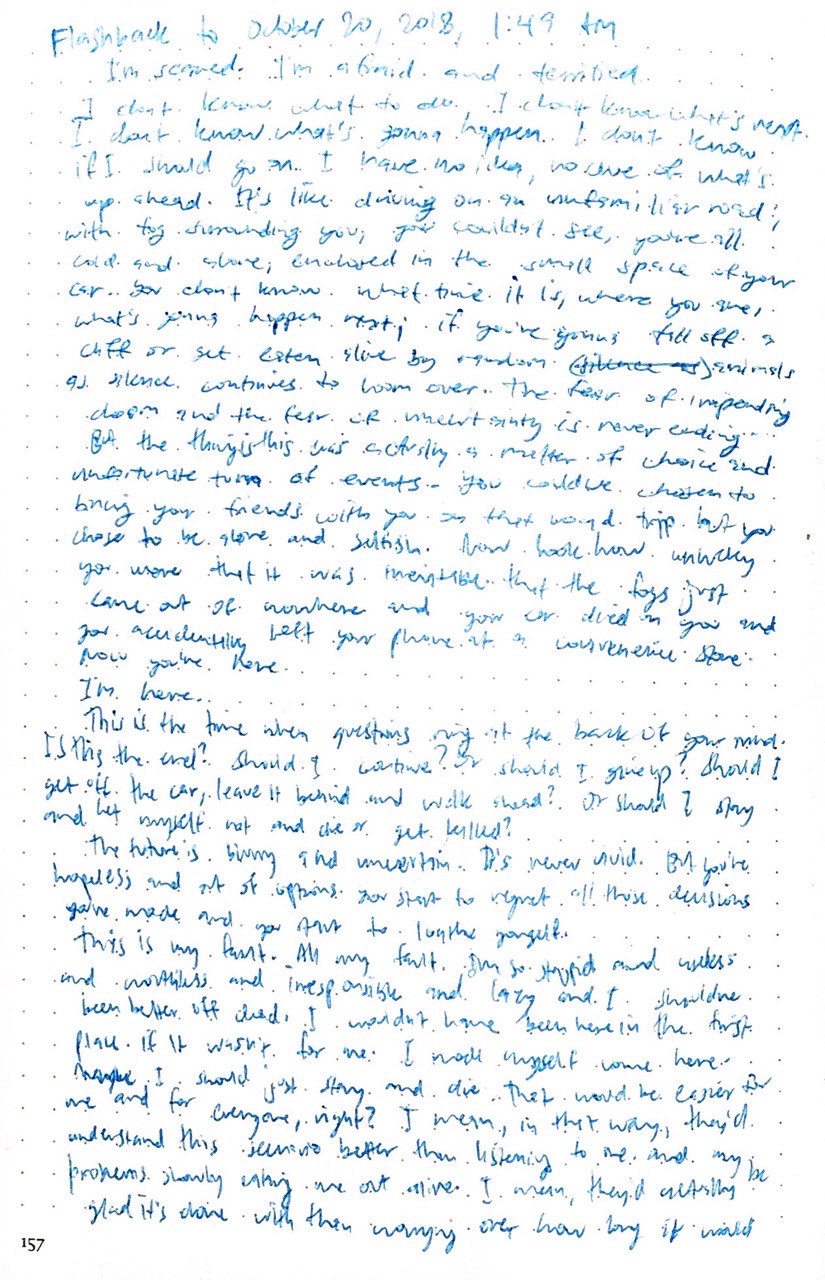 Flashback to October 20, 2018, 1:49 AM
I'm scared. I'm afraid. and terrified.
I don't know what to do. I don't know what's next.
I don't know what's gonna happen. I don't know
if I should go on. I have no idea, no clue of what's
up ahead. It's like driving on an unfamiliar road;
with fog surrounding you; you couldn't see, you're all
cold and alone; enclosed in the small space of your
car. You don't know what time it is, where you are,
what's gonna happen next; if you're gonna fall off a
cliff or get eaten alive by random (silence as) animals
as silence continues to loom over. The fear of impending
doom and the fear of uncertainty is never ending...
But the thing is this was actually a matter of choice and
unfortunate turn of events. You could've chosen to
bring your friends with you on that road tripp but you
chose to be alone and selfish. Now look how unlucky
you were that it was inevitable that the fogs just
came out of nowhere and your car died on you and
you accidentally left your phone at a convenience store.
Now you're here.
I'm here.
This is the time when questions ring at the back of your mind.
Is this the end? Should I continue? Or should I give up? Should I
get off the car, leave it behind and walk ahead? Or should I stay
and let myself rot and die or get killed?
The future is blurry and uncertain. It's never vivid. But you're
hopeless and out of options. You start to regret all those decisions
you've made and you start to loathe yourself.
This is my fault. All my fault. I'm so stupid and useless
and worthless and irresponsible and lazy and I should've
been better off dead. I wouldn't have been here in the first
place if it wasn't for me. I made myself come here.
Maybe I should just stay and die. That would be easier for
me and for everyone, right? I mean, in that way, they'd
understand this scenario better than listening to me and my
problems slowly eating me out alive. I mean, they'd actually be
glad it's done with than worrying over how long it would
157